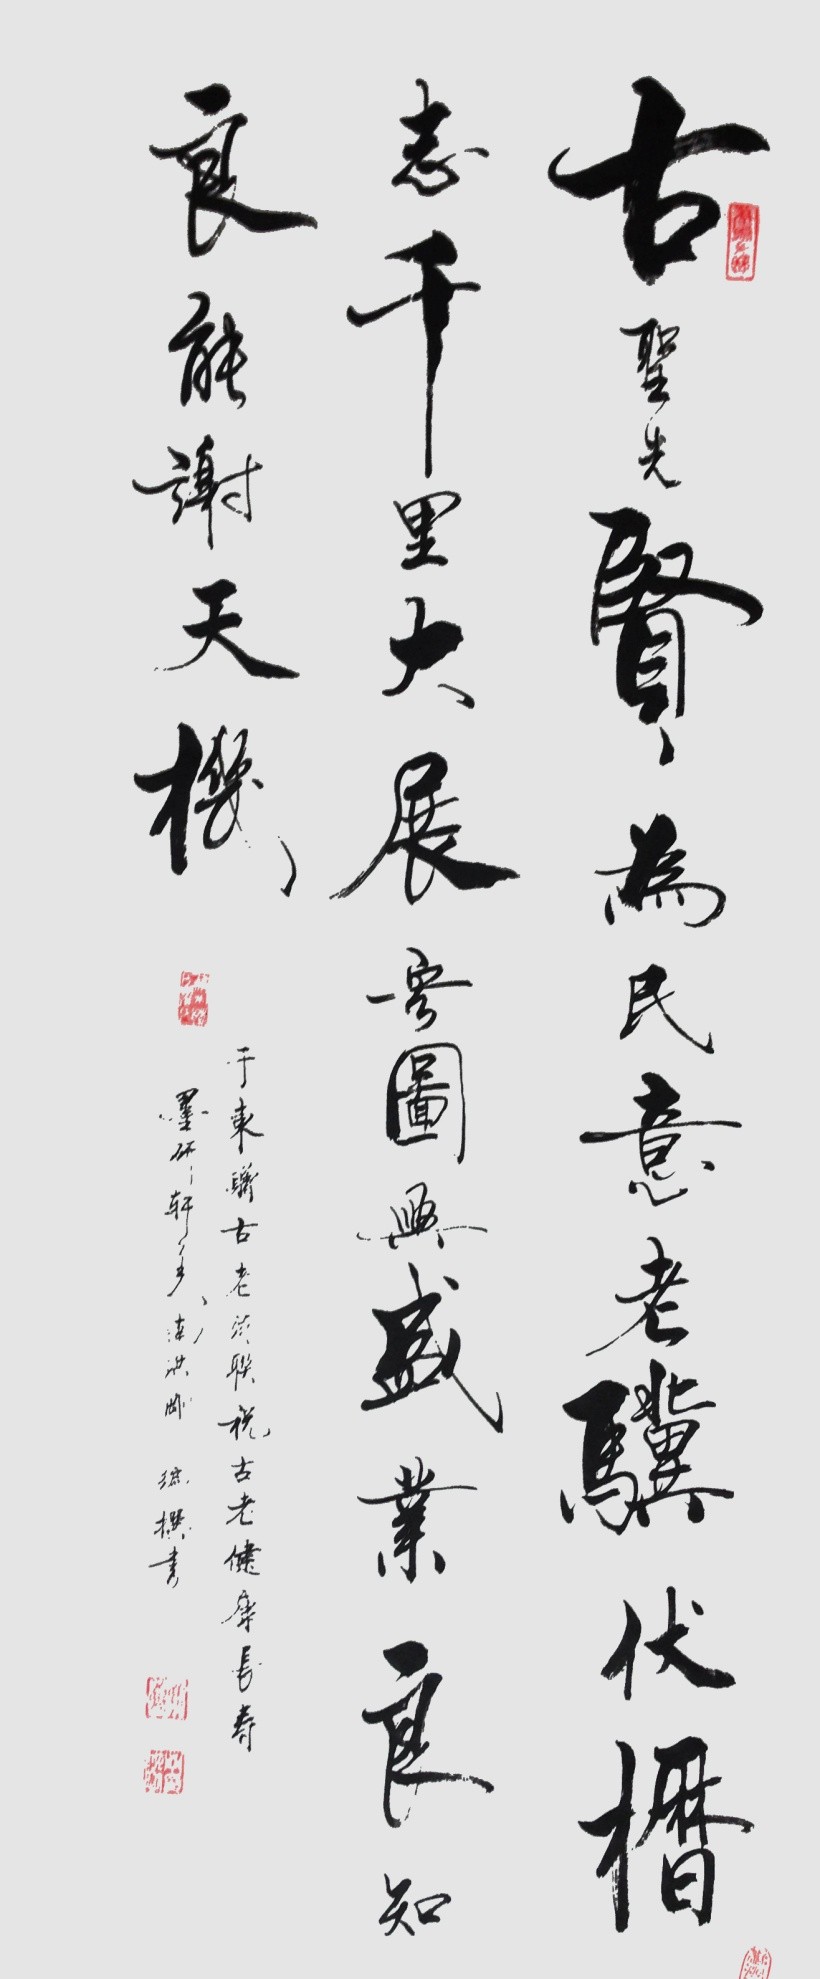 古聖先賢為民意老驥伏櫪
志千里大展宏圖興盛業良知
良能謝天機
于東 古老 聯祝古老健康長壽
墨研軒主 洪 撰書